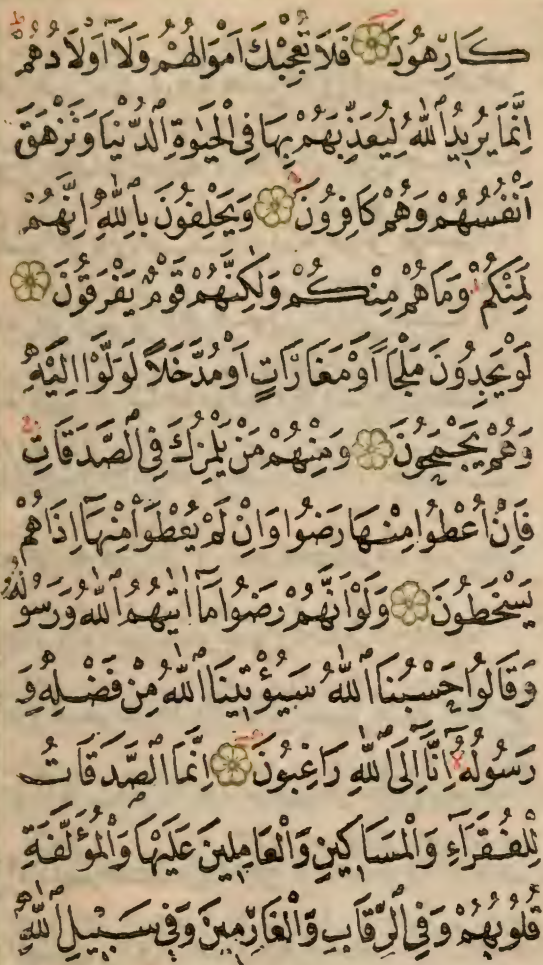 كَارِهُونَ فَلَا تُعْجِبْكَ اَمْوَالُهُمْ وَلَٓا اَوْلَادُهُمْ
اِنَّمَا يُرِيدُ ٱللّٰهُ لِيُعَذِّبَهُمْ بِهَا فِى الْحَيٰوةِ ٱلدُّنْيَا وَتَزْهَقَ
اَنْفُسُهُمْ وَهُمْ كَافِرُونَ وَيَحْلِفُونَ بِٱللّٰهِ اِنَّهُمْ
لَمِنْكُمْ وَمَا هُمْ مِنْكُمْ وَلٰكِنَّهُمْ قَوْمٌ يَفْرَقُونَ
لَوْ يَجِدُونَ مَلْجَأً اَوْ مَغَارَاتٍ اَوْ مُدَّخَلًا لَوَلَّوْا اِلَيْهِ
وَهُمْ يَجْمَحُونَ وَمِنْهُمْ مَنْ يَلْمِزُكَ فِى ٱلصَّدَقَاتِ
فَاِنْ اُعْطُوا مِنْهَا رَضُوا وَاِنْ لَمْ يُعْطَوْا مِنْهَٓا اِذَا هُمْ
يَسْخَطُونَ وَلَوْ اَنَّهُمْ رَضُوا مَٓا اٰتٰيهُمُ ٱللّٰهُ وَرَسُولُهُ
وَقَالُوا حَسْبُنَا ٱللّٰهُ سَيُؤْتِينَا ٱللّٰهُ مِنْ فَضْلِهِ وَ
رَسُولُهُ اِنَّٓا اِلَى ٱللّٰهِ رَاغِبُونَ اِنَّمَا ٱلصَّدَقَاتُ
لِلْفُقَرَٓاءِ وَالْمَسَاكِينِ وَالْعَامِلِينَ عَلَيْهَا وَالْمُؤَلَّفَةِ
قُلُوبُهُمْ وَفِى ٱلرِّقَابِ وَالْغَارِمِينَ وَفِى سَبِيلِ ٱللّٰهِ